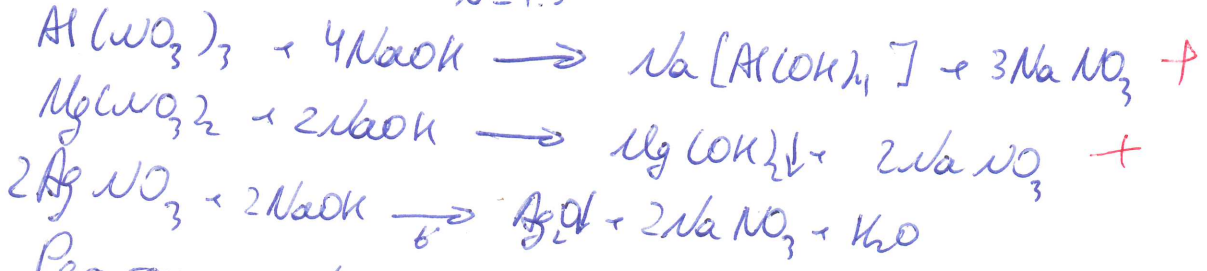 Al(NO₃)₃ + 4NaOH → Na[Al(OH)₄] + 3NaNO₃ +
Mg(NO₃)₂ + 2NaOH → Mg(OH)₂↓ + 2NaNO₃ +
2AgNO₃ + 2NaOH → Ag₂O↓ + 2NaNO₃ + H₂O